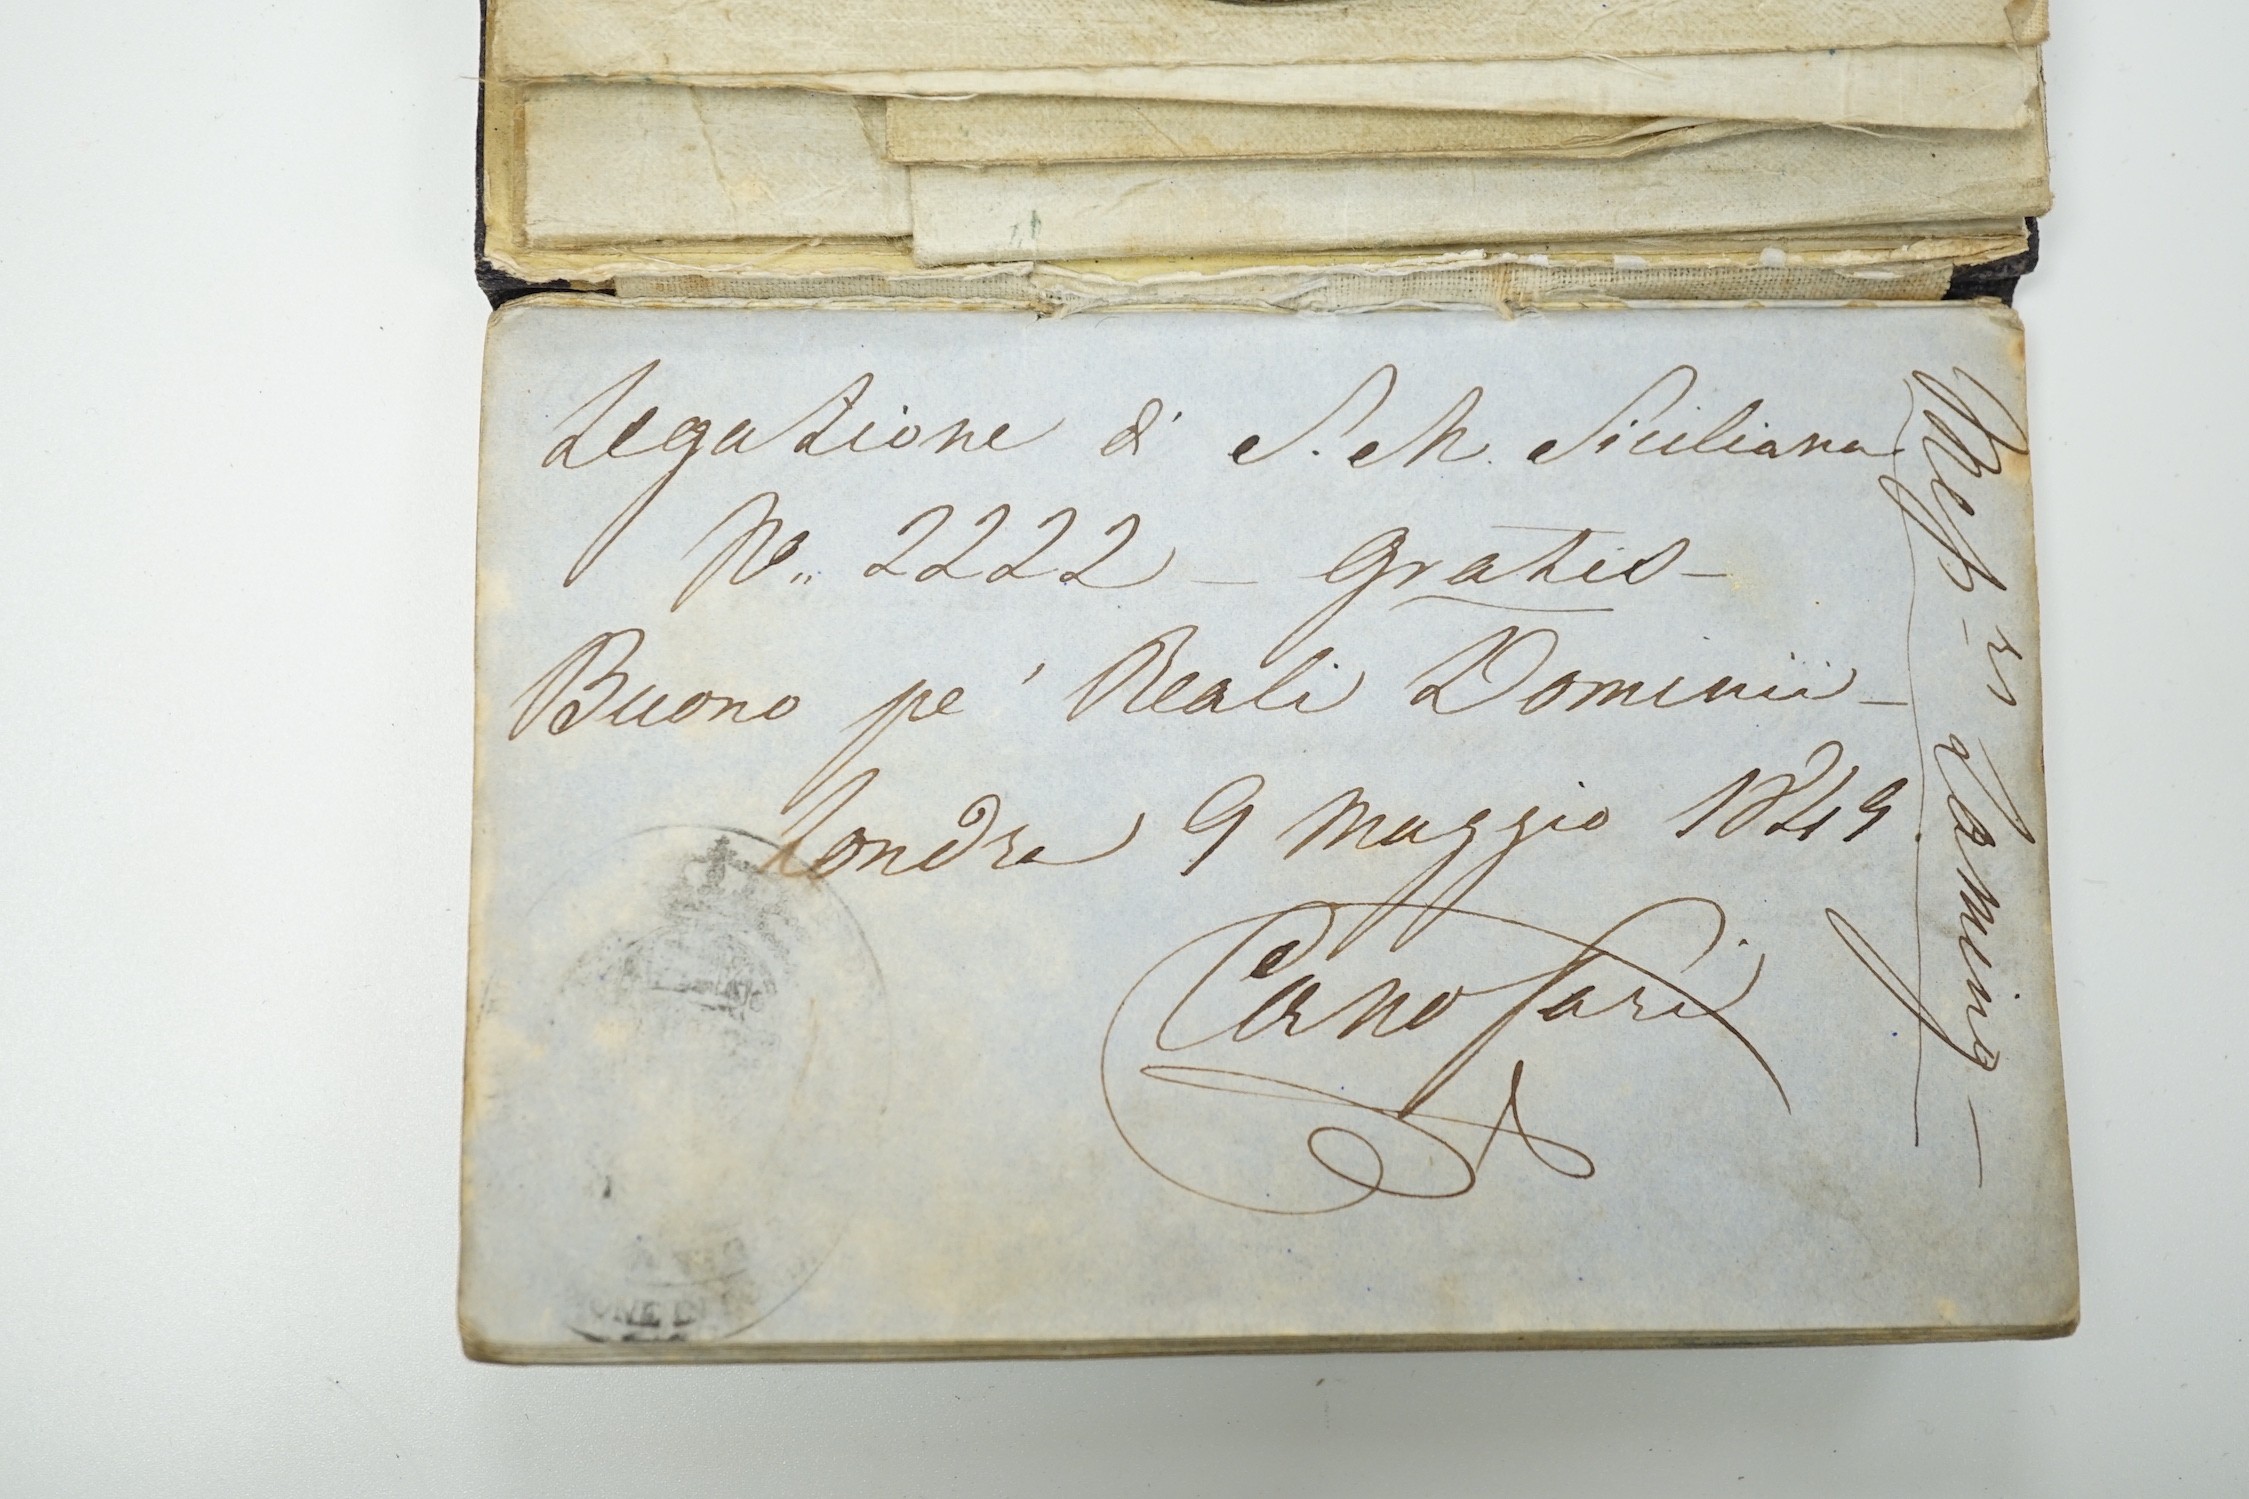 Legazione di S. M. Siciliana
No,, 2222 – Gratis –
Buono pe' Reali Dominii –
Londra 9 Maggio 1849.
Carlo Fari
ONE D